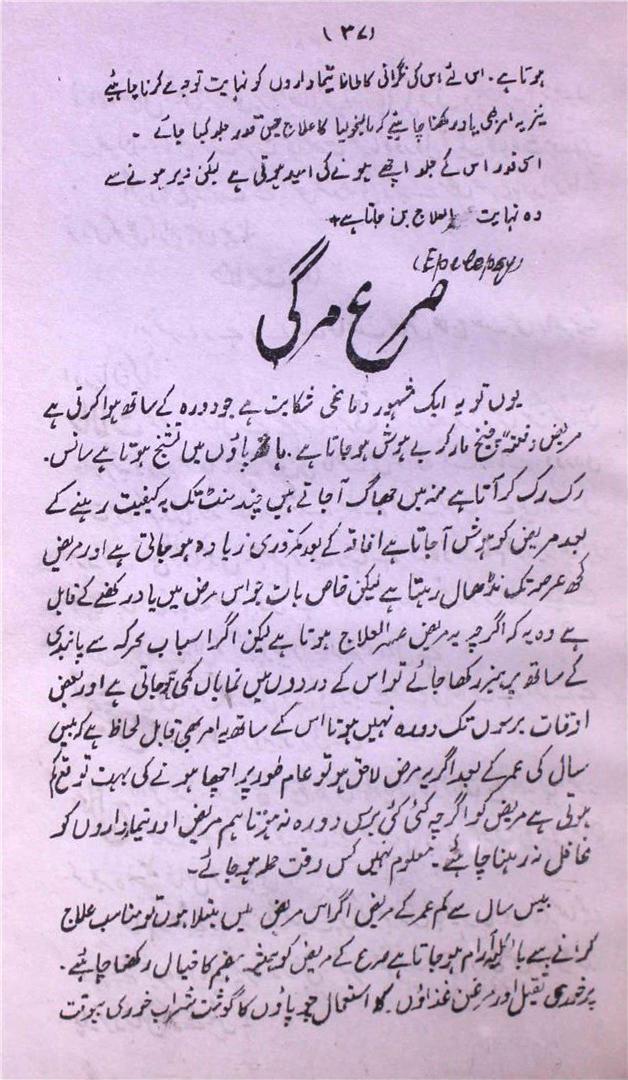 (۳۷)
ہوتا ہے۔ اس لئے اس کی نگرانی کا طاقا تیمارداروں کو نہایت توجہ سے کرنا چاہئیے
نیز یہ امر بھی یاد رکھنا چاہئیے کہ مالیخولیا کا علاج جس قدر جلد کیا جائے۔
اسی قدر اس کے جلد اچھے ہونے کی امید ہوتی ہے لیکن دیر ہونے سے
وہ نہایت العلاج بن جاتا ہے+
(Epelepsy)
صرع مرگی
یوں تو یہ ایک مشہور دماغی شکایت ہے جو دورہ کے ساتھ ہوا کرتی ہے
مریض دفعتہً چیخ مار کر بے ہوش ہو جاتا ہے۔ ہاتھ پاؤں میں تشنج ہوتا ہے سانس۔
رک رک کر آتا ہے منہ میں جھاگ آجاتے ہیں چند منٹ تک یہ کیفیت رہنے کے
بعد مریض کو ہوش آجاتا ہے افاقہ کے بعد کمزوری زیادہ ہو جاتی ہے اور مریض
کچھ عرصہ تک نڈھال رہتا ہے لیکن خاص بات جو اس مرض میں یاد رکھنے کے قابل
ہے وہ یہ کہ اگرچہ یہ مریض عسر العلاج ہوتا ہے لیکن اگر اسباب محرکہ سے پابندی
کے ساتھ پرہیز رکھا جائے تو اس کے دردوں میں نمایاں کمی آجاتی ہے اور بعض
اوقات برسوں تک دورہ نہیں ہوتا اس کے ساتھ یہ امر بھی قابل لحاظ ہے کہ بیس
سال کی عمر کے بعد اگر یہ مرض لاحق ہو تو عام طور پر اچھا ہونے کی بہت توقع کم
ہوتی ہے مریض کو اگرچہ کئی کئی برس دورہ نہ ہوتا ہم مریض اور تیمارداروں کو
غافل نہ رہنا چاہئے۔ معلوم نہیں کس وقت حملہ ہو جائے۔
بیس سال سے کم عمر کے مریض اگر اس مریض میں مبتلا ہوں تو مناسب علاج
کرانے سے بالکلیہ آرام ہو جاتا ہے صرع کے مریض کو ہمیشہ ہضم کا خیال رکھنا چاہئے۔
پرخوری ثقیل اور مرغن غذاؤں کا استعمال چوپاؤں کا گوشت شراب خوری بیوقت